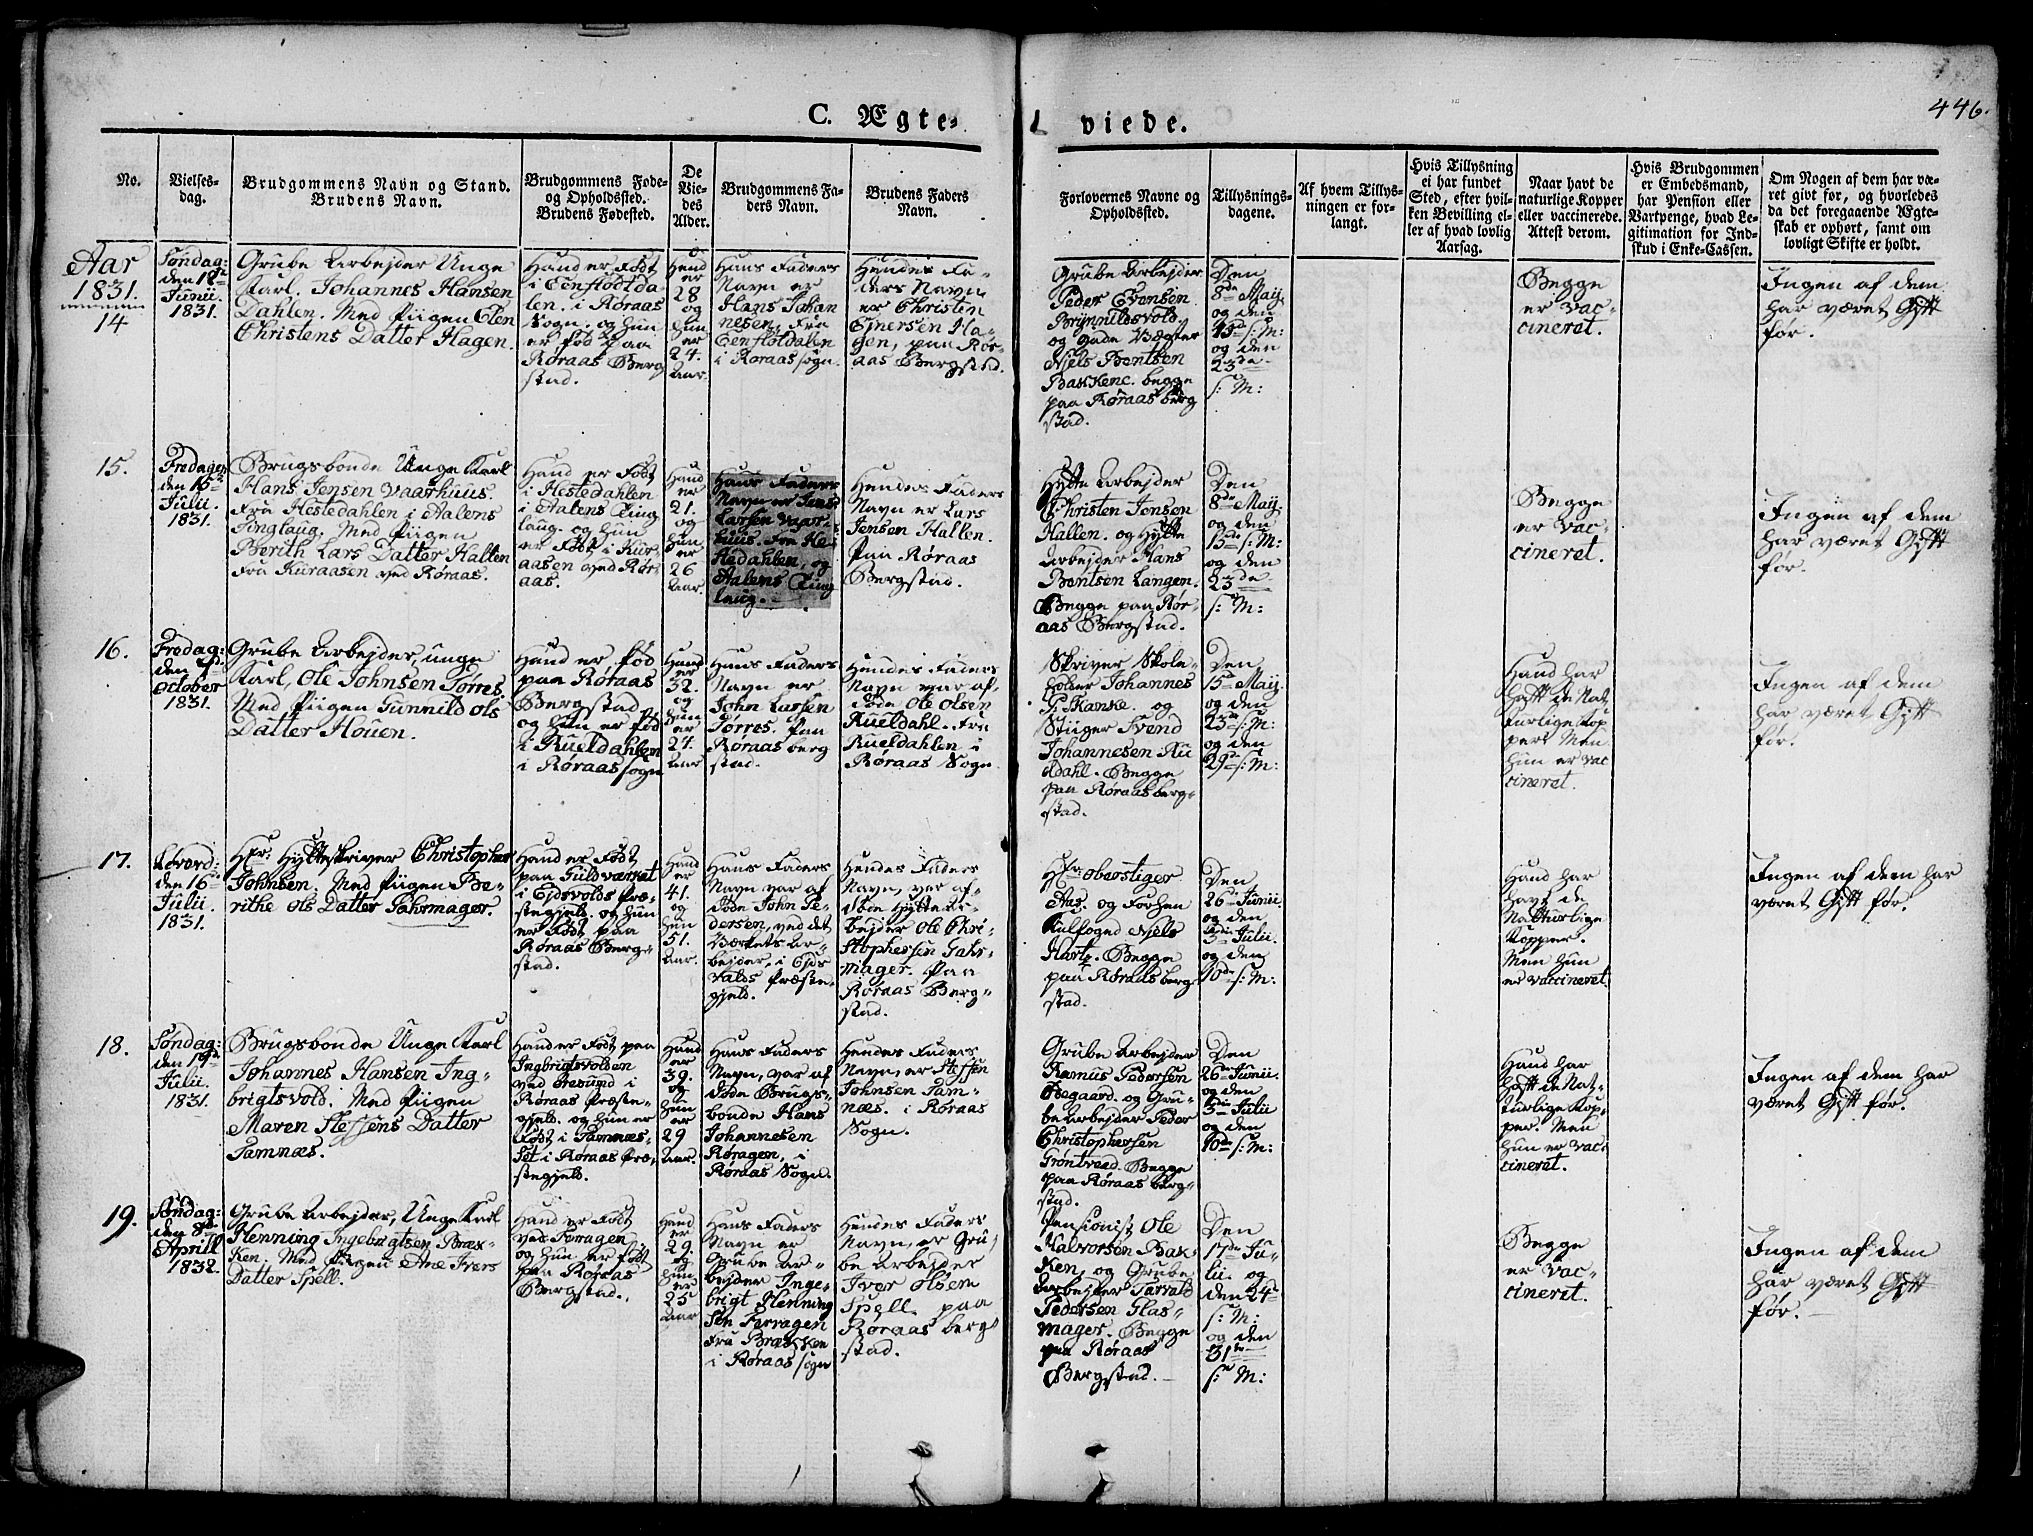 446.
C. Ægte-
viede.
No.
Vielses-
dag.
Brudgommens Navn og Stand.
Brudens Navn.
Brudgommens Føde-
og Opholdssted.
Brudens Fødested.
De
Vie-
des
Alder.
Brudgommens Fa-
ders Navn.
Brudens Faders
Navn.
Forlovernes Navne og
Opholdssted.
Tillysnings-
dagene.
Af hvem Tillys-
ningen er for-
langt.
Hvis Tillysning
ei har fundet
Sted, efter hvil-
ken Bevilling el-
ler af hvad lovlig
Aarsag.
Naar havt de
naturlige Kopper
eller vaccinerede.
Attest derom.
Hvis Brudgommen
er Embedsmand,
har Pension eller
Vartpenge, hvad Le-
gitimation for Ind-
skud i Enke-Cassen.
Om Nogen af dem har væ-
ret givt før, og hvorledes
da det foregaaende Ægte-
skab er ophørt, samt om
lovligt Skifte er holdt.
Aar
1831.
14
Søndag:
Junii.
1831.
Grube Arbejder Unge
Karl. Johannes Hansen
Dahlen. Med Piigen Elen
Christens Datter Hagen.
Hand er Født
i Feenflodda-
len. i Røraas
Sogn. og hun
er Fød paa
Røraas Berg
stad.
Hand
er
28
og
hun
er
24.
Aar.
Hans Faders
Navn er
Hans Johan
nesen. Fra
i Røraas Sogn.
Hendes Fa-
ders Navn
er Christen
Ejnersen Ha-
gen, paa Rør-
aas Bergstad.
Grube Arbejder
Peder Evensen
Brynnildsvold.
og Gade Vægter
Niels Bentsen
Bakkene. begge
paa Røraas berg
stad.
Den
8de May.
og den
og den
23de
s: M:
Begge
er vac-
cineret.
Ingen af dem
har været Gift
før.
15.
Fredagen
den 15de
Julii.
1831.
Brugsbonde Unge Karl
Hans Jensen Vaarhuus.
Fra Hestedahlen i Aalens
Tinglaug. Med Piigen
Berith Lars Datter Halten
Fra Kuraasen ved Røraas.
Hand er Født
i Hestedahlen
i Aalens Ting
laug. og hun
er Født i Kur-
aasen ved Rør-
aas.
Hand
er
21.
og
hun
er
26
Aar.
Hans Faders
Navn er Jens
Larsen Vaar-
huus. Fra He-
stedahlen, og
Aalens Ting
laug.
Hendes Faders
Navn er Lars
Jensen Halten.
Paa Røraas
Bergstad.
Hytte Arbejder
Christen Jensen
Hallen. og Hytte
Arbejder Hans
Bentsen Langen.
Begge paa Rør-
aas Bergstad.
Den
8de May.
og den
15de s: M:
og den
23de
s: M:
Begge
er vac-
cineret.
Ingen af dem
har været Gift
før.
16.
Fredag:
October
1831.
Grube Arbejder, unge
Karl, Ole Johnsen Tørres.
Med Piigen Gunnild Ols
Datter Houen.
Hand er Fød
paa Røraas
Bergstad
og hun er Fød
i Rueldahlen
i Røraas sogn
Hand
er
32.
og
hun
er
24.
Aar
Hans Faders
Navn er
John Larsen
Tørres. Paa
Røraas berg
stad.
Hendes Faders
Navn var af-
døde Ole Olsen
Rueldahl. Fra
Rueldahlen i
Røraas Sogn.
Skriver Skole-
holder Johannes
G: Skanke. og
Stiiger Svend
Johannesen Ru
eldahl. Begge
paa Røraas berg-
stad.
Den
15de Maij.
og den
23de s: M:
og den
29de s: M:
Hand har
haft de Nat-
turlige Kop
per. Men
hun er vac
cineret.
Ingen af dem
har været Gift
før.
17.
Løverd:
den 16de
Julii.
1831.
Hr: Hytteskriver Christopher
Johnsen. Med Piigen Be-
rithe Ols Datter Jahrmager.
Hand er Født
paa Guldværket
i Eidsvolds Præ-
stegjeld. og hun
er Født paa
Røraas Berg-
stad.
Hand
er
41.
og
hun
51.
Aar.
Hans Faders
Navn var af
døde John Pe-
dersen, ved det
Værkets Ar-
bejder, i Ejds
valds Præste-
gjeld.
Hendes Faders
Navn, var af-
døde Hytte Ar-
bejder Ole Chri-
stophersen Gahr-
mager. Paa
Røraas Berg-
stad.
Hr: Oberstiger
Aas. og Forhen
Kulfoged Niels
Hart. Begge
paa Røraas berg
stad.
Den
26de Junii.
og den
3die Julii.
og den
10de s: M:
Hand har
havt de
Natturlige
Kopper.
Men hun
er vaccineret.
Ingen af dem har
været Gift før.
18.
Søndag:
Julii.
1831.
Brugsbonde Unge Karl
Johannes Hansen Ing-
brigtsvold. Med Piigen
Maren Steffens Datter
Tamnæs.
Hand er Født paa
Ingbrigtsvolden
ved Bresund i
Røraas Præste-
gjeld. og hun er
Født i Tamnæs-
set i Røraas Præ-
stegjeld.
Hand
er
39.
og
hun
er
29
Aar.
Hans Faders
Navn, var af
døde Brugs-
bonde Hans
Johannesen
Røragen, i
Røraas Sogn.
Hendes Faders
Navn, er Steffen
Johnsen Tam-
næs. i Røraas
Sogn.
Grube Arbejder
Rasmus Pedersen
Øegaard. og Gru-
be Arbejder Peder
Christophersen
Grøntvead. Begge
paa Røraas berg-
stad.
Den
26de Junii.
og den
3die Julii
og den
10de s: M:
Hand har
haft de Nat-
turlige Kop-
per. Men
hun er vac-
cineret.
Ingen af dem har
været Gift før.
19.
Søndag:
den 8de
Aprill
1832.
Grube Arbejder, Unge Karl
Henning Ingebrigtsen Bræk-
ken. Med Piigen Ane Ivers
Datter Spell.
Hand er Født
ved Feragen
og hun er født
paa Røraas
Bergstad.
Hand
er
29.
og
hun
er
25
Aar
Hans Faders
Navn er
Grube Ar-
bejder Inge-
brigt Henning
sen Ferragen
Fra Brækken
i Røraas sogn
Hendes Faders
Navn, er Gru-
be Arbejder
Iver Olsen
Spell. paa
Røraas berg
stad.
Pensionist Ole
Halvorsen Bak-
ken, og Grube
Arbejder Tarrald
Pedersen Glas-
mager. Begge
paa Røraas
Bergstad.
Den
17de Ju-
lii. og
den 24de
s: M:
og den
31te
s: M:
Begge
er vac-
cineret.
Ingen af dem
har været Gift
før.